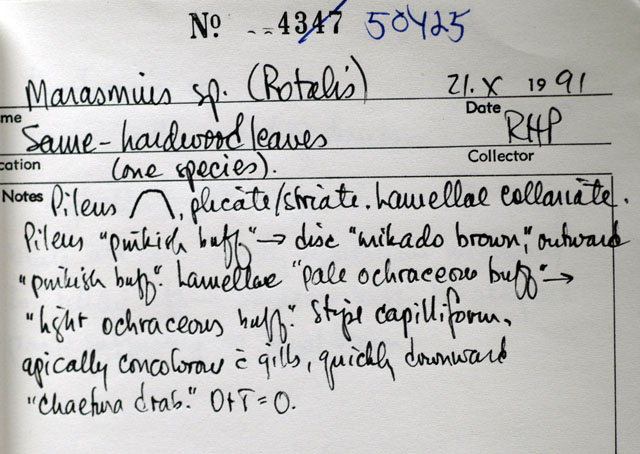 Nº 4347 50425
Marasmius sp. (Rotalis) 21. X 1991
me Date
Same - hardwood leaves RHP
cation (one species). Collector
Notes Pileus , plicate/striate. Lamellae collariate.
Pileus "pinkish buff" → disc "mikado brown", outward
"pinkish buff". Lamellae "pale ochraceous buff" →
"light ochraceous buff." Stipe capilliform,
apically concolorous c̄ gills, quickly downward
"chaetura drab." O+T = 0.